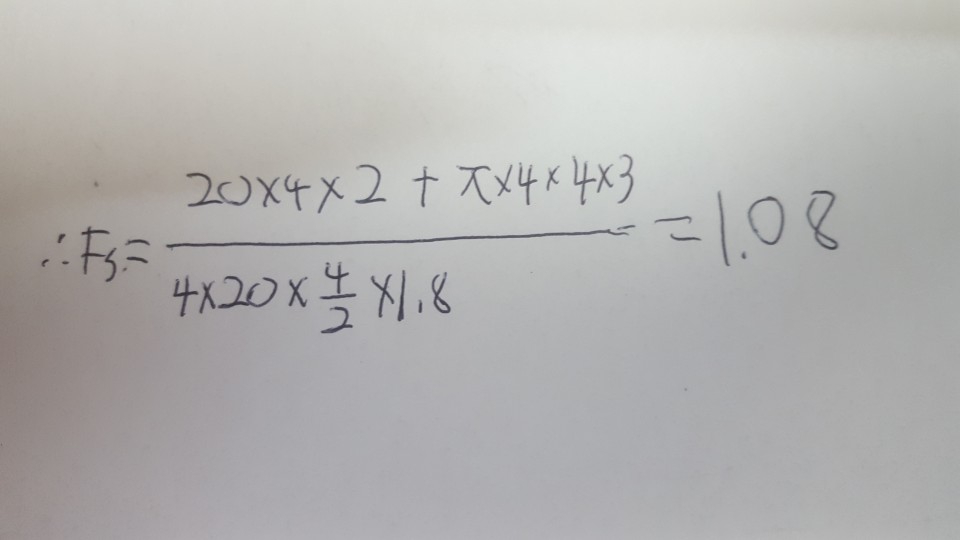 ∴Fs = (20×4×2 + π×4×4×3) / (4×20×4/2×1.8) = 1.08